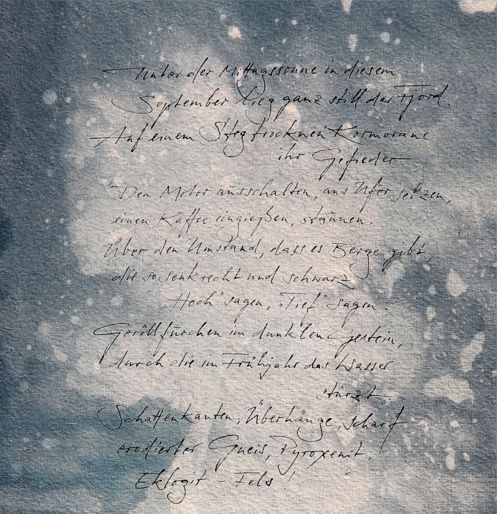 Unter der Mittagssonne in diesem
September liegt ganz still der Fjord.
Auf einem Steg trocknen Kormorane
ihr Gefieder
Den Motor ausschalten, ans Ufer setzen,
einen Kaffee eingießen, staunen.
Über den Umstand, dass es Berge gibt,
die so senkrecht und schwarz
„Hoch" sagen, „Tief" sagen.
Geröllfurchen im dunklen Gestein,
durch die im Frühjahr das Wasser
stürzt.
Schattenkanten, Überhänge, scharf
erodierter Gneis, Pyroxenit,
Eklogit - Fels!